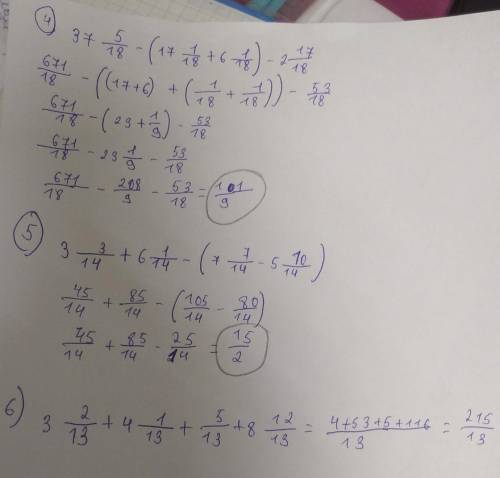 4) 37 5/18 - (17 1/18 + 6 1/18) - 2 17/18
671/18 - ((17+6) + (1/18 + 1/18)) - 53/18
671/18 - (23 + 1/9) - 53/18
671/18 - 23 1/9 - 53/18
671/18 - 208/9 - 53/18 = 101/9
5) 3 3/14 + 6 1/14 - (7 7/14 - 5 10/14)
45/14 + 85/14 - (105/14 - 80/14)
45/14 + 85/14 - 25/14 = 15/2
6) 3 2/13 + 4 1/13 + 5/13 + 8 12/13 = 4+53+5+116/13 = 215/13